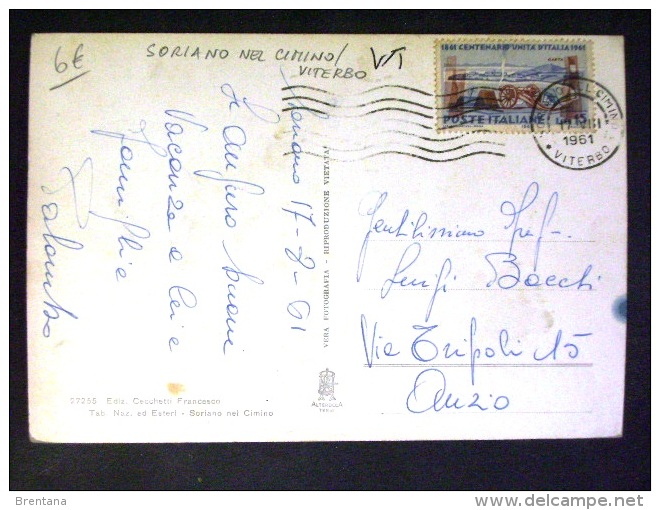 6€
SORIANO NEL CIMINO/
VITERBO
VT
1861 CENTENARIO UNITA D'ITALIA 1961
GAETA
POSTE ITALIANE L. 15
CIMINO
1961
* VITERBO *
Soriano 17-8-61
Le auguro buone
Vacanze a Lei e
famiglia
Palombo
VERA FOTOGRAFIA - RIPRODUZIONE VIETATA
Gentilissimo
Luigi Bocchi
Via Tripoli 15
Anzio
27255 Ediz. Cecchetti Francesco
Tab. Naz. ed Esteri - Soriano nel Cimino
ALTEROCCA
TERNI
Brentana
delcampe.net